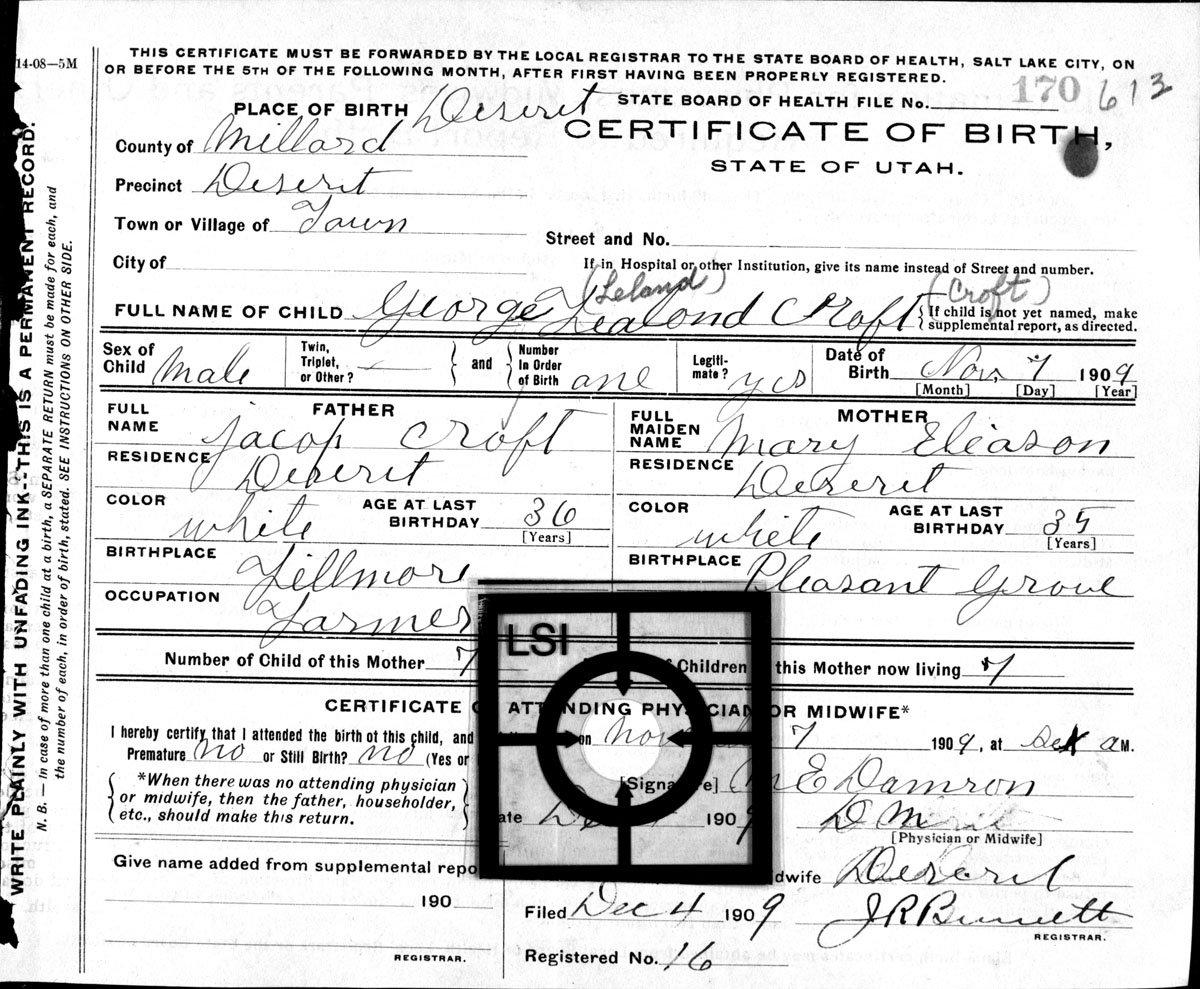 14-08—5M
THIS CERTIFICATE MUST BE FORWARDED BY THE LOCAL REGISTRAR TO THE STATE BOARD OF HEALTH, SALT LAKE CITY, ON
OR BEFORE THE 5TH OF THE FOLLOWING MONTH, AFTER FIRST HAVING BEEN PROPERLY REGISTERED.
PLACE OF BIRTH Deseret STATE BOARD OF HEALTH FILE No. 170 613
CERTIFICATE OF BIRTH,
STATE OF UTAH.
County of Millard
Precinct Deserit
Town or Village of Town
Street and No.
City of
If in Hospital or other Institution, give its name instead of Street and number.
(Leland) (Croft)
FULL NAME OF CHILD George Lealond Croft
If child is not yet named, make
supplemental report, as directed.
Sex of Child Male
Twin, Triplet, or Other? —
and
Number In Order of Birth one
Legiti-mate? yes
Date of Birth Nov, 7 1909
[Month] [Day] [Year]
FATHER
FULL NAME Jacop Croft
RESIDENCE Deserit
COLOR white AGE AT LAST BIRTHDAY 36
[Years]
BIRTHPLACE Fillmore
OCCUPATION Farmer
MOTHER
FULL MAIDEN NAME Mary Eleason
RESIDENCE Deserit
COLOR white AGE AT LAST BIRTHDAY 35
[Years]
BIRTHPLACE Pleasant Grove
Number of Child of this Mother 7
of Children this Mother now living 7
LSI
CERTIFICATE ATTENDING PHYSICIAN OR MIDWIFE*
I hereby certify that I attended the birth of this child, and on Nov 7 1909, at A M.
Premature? no or Still Birth? no (Yes or
*When there was no attending physician
or midwife, then the father, householder,
etc., should make this return.
[Signature] M E Damron
ate 1909 D M
[Physician or Midwife]
Give name added from supplemental repo
dwife Deseret
190
Filed Dec 4 1909 J R Bennett
REGISTRAR.
REGISTRAR.
Registered No. 16
WRITE PLAINLY WITH UNFADING INK--THIS IS A PERMANENT RECORD.
N. B. — In case of more than one child at a birth, a SEPARATE RETURN must be made for each, and
the number of each, in order of birth, stated. SEE INSTRUCTIONS ON OTHER SIDE.